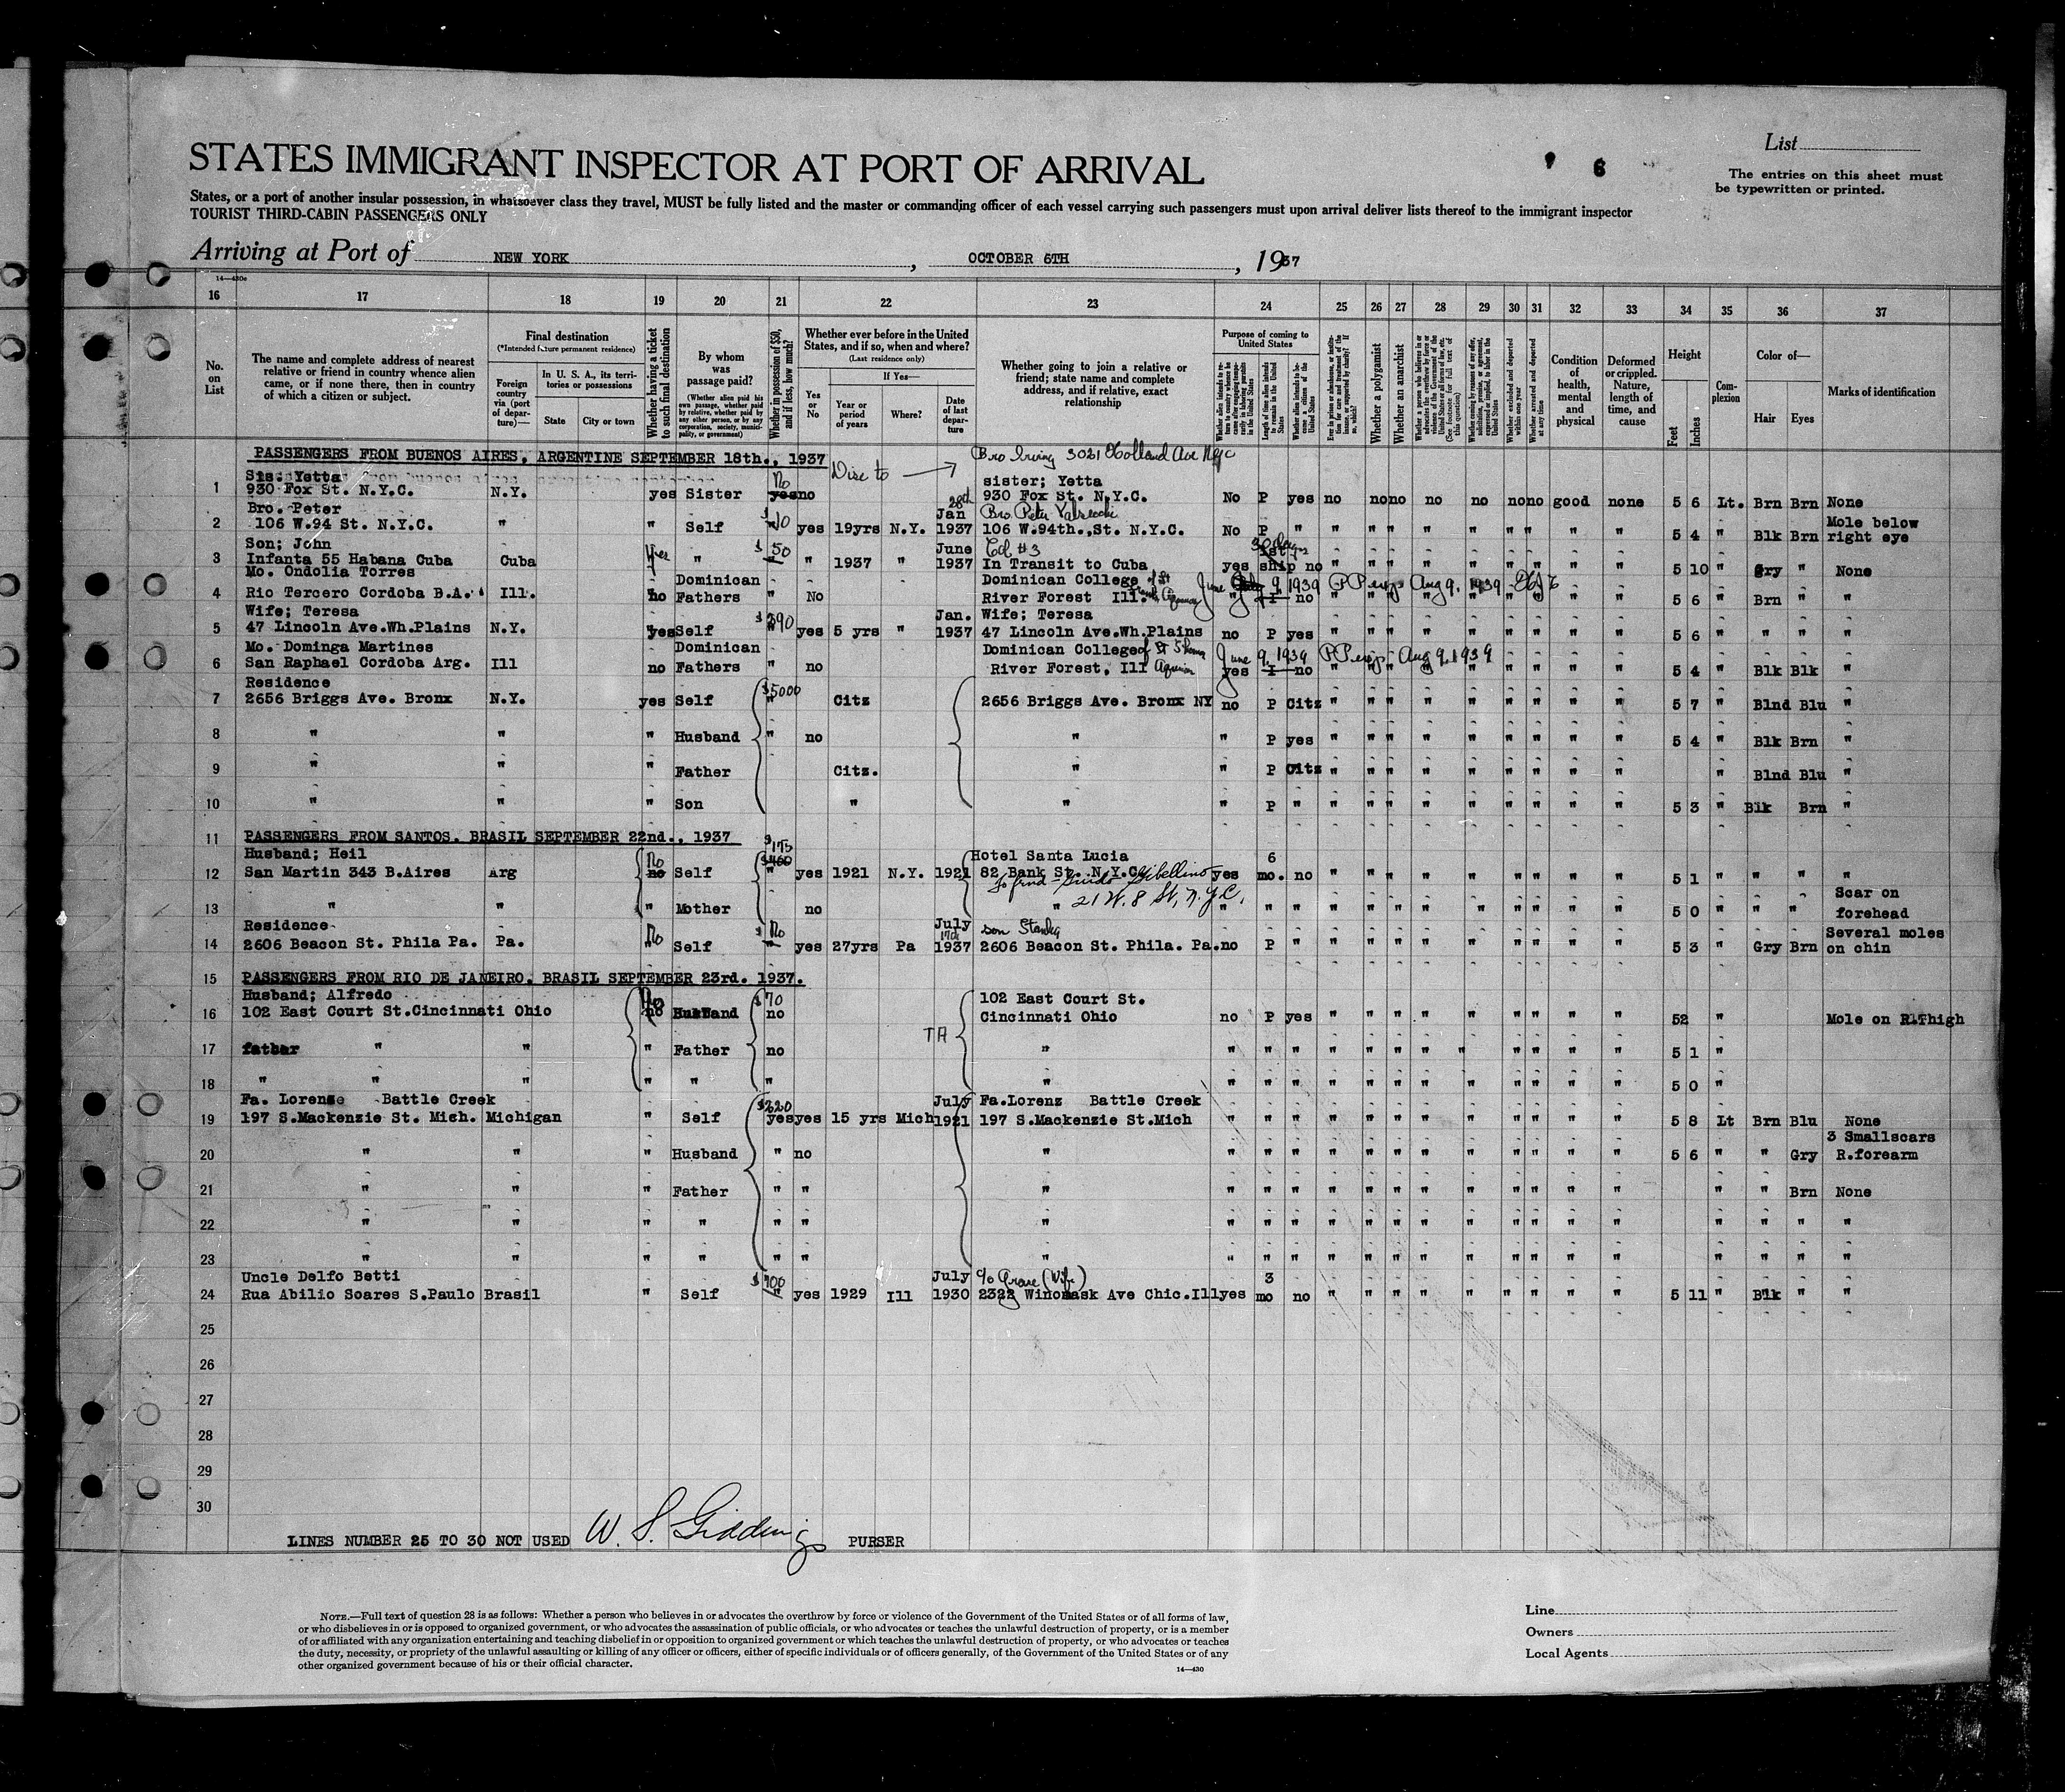 List
STATES IMMIGRANT INSPECTOR AT PORT OF ARRIVAL
6
The entries on this sheet must
be typewritten or printed.
States, or a port of another insular possession, in whatsoever class they travel, MUST be fully listed and the master or commanding officer of each vessel carrying such passengers must upon arrival deliver lists thereof to the immigrant inspector
TOURIST THIRD-CABIN PASSENGERS ONLY
Arriving at Port of NEW YORK, OCTOBER 6TH, 1937
14—430e
16 17 18 19 20 21 22 23 24 25 26 27 28 29 30 31 32 33 34 35 36 37
No. on List
The name and complete address of nearest relative or friend in country whence alien came, or if none there, then in country of which a citizen or subject.
Final destination
(*Intended future permanent residence)
Foreign country via (port of departure)—
In U. S. A., its territories or possessions
State City or town
Whether having a ticket to such final destination
By whom was passage paid?
(Whether alien paid his own passage, whether paid by relative, whether paid by any other person, or by any corporation, society, municipality, or government)
Whether in possession of $50, and if less, how much?
Whether ever before in the United States, and if so, when and where?
(Last residence only)
Yes or No
If Yes—
Year or period of years
Where?
Date of last departure
Whether going to join a relative or friend; state name and complete address, and if relative, exact relationship
Purpose of coming to United States
Length of time alien intends to remain in the United States
Whether alien intends to become a citizen of the United States
Whether a polygamist
Whether an anarchist
Whether excluded and deported within one year
Whether arrested and deported at any time
Condition of health, mental and physical
Deformed or crippled. Nature, length of time, and cause
Height
Feet Inches
Complexion
Color of—
Hair Eyes
Marks of identification
PASSENGERS FROM BUENOS AIRES, ARGENTINE SEPTEMBER 18th., 1937
Bro Irving 3021 Holland Ave NYC
Sis: Yetta No sister; Yetta
1 930 Fox St. N.Y.C. N.Y. yes Sister yes no 930 Fox St. N.Y.C. No P yes no no no no no no no good none 5 6 Lt. Brn Brn None
Bro. Peter Jan 28th Bro Peter Mole below
2 106 W.94 St. N.Y.C. " " Self yes 19yrs N.Y. 1937 106 W.94th.,St. N.Y.C. No P " " " " " " " " " " 5 4 " Blk Brn right eye
Son; John $50 June
3 Infanta 55 Habana Cuba Cuba yes " " 1937 " 1937 In Transit to Cuba yes ship no " " " " " " " " " 5 10 " Gry " None
Mo. Ondolia Torres Dominican Dominican College of St
4 Rio Tercero Cordoba B.A. Ill. no Fathers " No River Forest Ill. June 9, 1939 no Aug 9, 1939 5 6 " Brn " "
Wife; Teresa Jan. Wife; Teresa
5 47 Lincoln Ave.Wh.Plains N.Y. yes Self " yes 5 yrs " 1937 47 Lincoln Ave.Wh.Plains no P yes " " " " " " " " " 5 6 " " " "
Mo. Dominga Martines Dominican Dominican College of St June 9, 1939 Aug 9, 1939
6 San Raphael Cordoba Arg. Ill no Fathers " no River Forest, Ill yes I no " " " " " " " " " 5 4 " Blk Blk "
Residence $5000
7 2656 Briggs Ave. Bronx N.Y. yes Self " Citz 2656 Briggs Ave. Bronx NY no P Citz " " " " " " " " " 5 7 " Blnd Blu "
8 " " " Husband " no " " P yes " " " " " " " " " 5 4 " Blk Brn "
9 " " " Father Citz. " " P Citz " " " " " " " " " " Blnd Blu "
10 " " " Son " " " P " " " " " " " " " " 5 3 " Blk Brn "
11 PASSENGERS FROM SANTOS. BRASIL SEPTEMBER 22nd., 1937
Husband; Heil No $175 Hotel Santa Lucia 6
12 San Martin 343 B.Aires Arg no Self " yes 1921 N.Y. 1921 82 Bank St. N.Y.C. yes mo. no " " " " " " " " " 5 1 " " " "
21 W. 8 St, N.Y.C. Scar on
13 " " " Mother no " " " " " " " " " " " " " 5 0 " " " forehead
Residence No July son Stanley Several moles
14 2606 Beacon St. Phila Pa. Pa. No Self yes 27yrs Pa 1937 2606 Beacon St. Phila. Pa. no P " " " " " " " " " " 5 3 " Gry Brn on chin
15 PASSENGERS FROM RIO DE JANEIRO. BRASIL SEPTEMBER 23rd. 1937.
Husband; Alfredo No $70 102 East Court St.
16 102 East Court St.Cincinnati Ohio no Husband no Cincinnati Ohio no P yes " " " " " " " " " 5 2 " Mole on R.Thigh
17 father " " " Father no " " " " " " " " " " " " " 5 1 "
18 " " " " " " " " " " " " " " " " " " " 5 0 "
Fa. Lorenze Battle Creek $220 July Fa.Lorenz Battle Creek
19 197 S.Mackenzie St. Mich. Michigan " Self yes yes 15 yrs Mich 1921 197 S.Mackenzie St.Mich " " " " " " " " " " " " 5 8 Lt Brn Blu None
3 Smallscars
20 " " " Husband " no " " " " " " " " " " " " " 5 6 " " Gry R.forearm
21 " " " Father " " " " " " " " " " " " " " " " " Brn None
22 " " " " " " " " " " " " " " " " " " " " " " "
23 " " " " " " " " " " " " " " " " " " " " " " "
Uncle Delfo Betti July c/o (Wife) 3
24 Rua Abilio Soares S.Paulo Brasil " Self " yes 1929 Ill 1930 2322 Ave Chic.Ill yes mo no " " " " " " " " " 5 11 " Blk " "
25
26
27
28
29
30
LINES NUMBER 25 TO 30 NOT USED W. S. Giddings PURSER
NOTE.—Full text of question 28 is as follows: Whether a person who believes in or advocates the overthrow by force or violence of the Government of the United States or of all forms of law,
or who disbelieves in or is opposed to organized government, or who advocates the assassination of public officials, or who advocates or teaches the unlawful destruction of property, or is a member
of or affiliated with any organization entertaining and teaching disbelief in or opposition to organized government or which teaches the unlawful destruction of property, or who advocates or teaches
the duty, necessity, or propriety of the unlawful assaulting or killing of any officer or officers, either of specific individuals or of officers generally, of the Government of the United States or of any
other organized government because of his or their official character.
14—430
Line
Owners
Local Agents